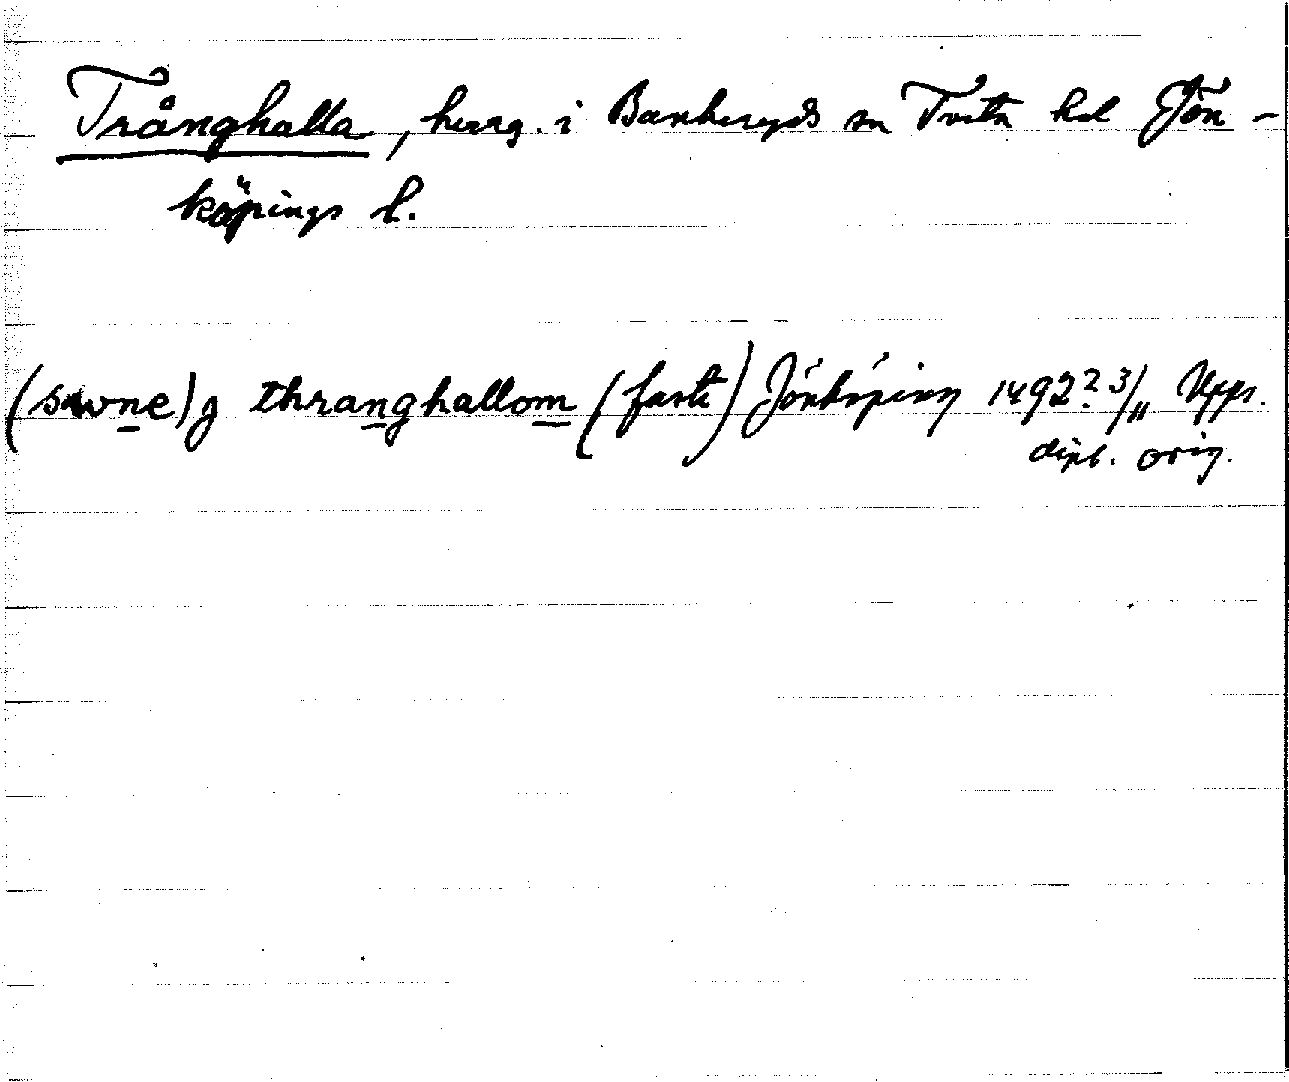 Trånghalla, herrg. i Bankeryds sn Tveta hd Jön-
köpings l.
(swne) j thranghallom (faste) Jönköping 1492? 3/11 Upps.
dipl. orig.